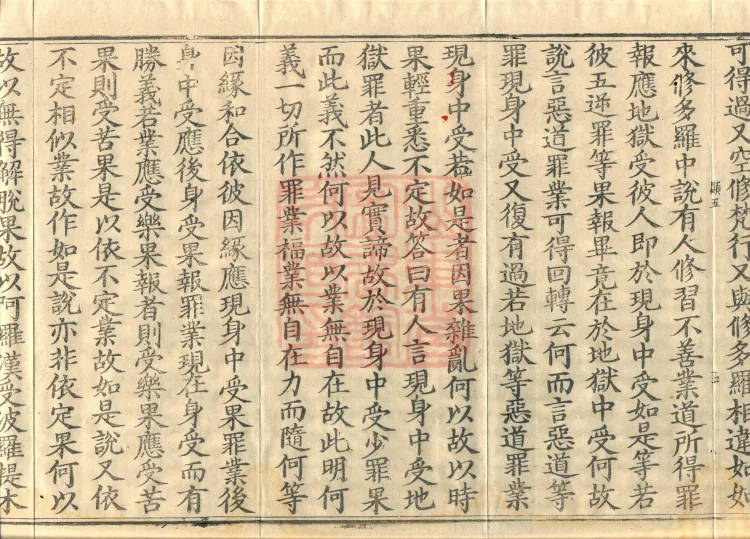 可得過又空修梵行又與修多羅相違如如
來修多羅中說有人修習不善業道所得罪
報應地獄受彼人即於現身中受如是等若
彼五逆罪等果報畢竟在於地獄中受何故
說言惡道罪業可得回轉云何而言惡道等
罪現身中受又復有過若地獄等惡道罪業
現身中受若如是者因果雜亂何以故以時
果輕重悉不定故答曰有人言現身中受地
獄罪者此人見實諦故於現身中受少罪果
而此義不然何以故以業無自在故此明何
義一切所作罪業福業無自在力而隨何等
因緣和合依彼因緣應現身中受果罪業後
身中受應後身受果報罪業現在身受而有
勝義若業應受樂果報者則受樂果應受苦
果則受苦果是以依不定業故如是說又依
不定相似業故作如是說亦非依定果何以
故以無得解脫果故以阿羅漢受彼羅提木